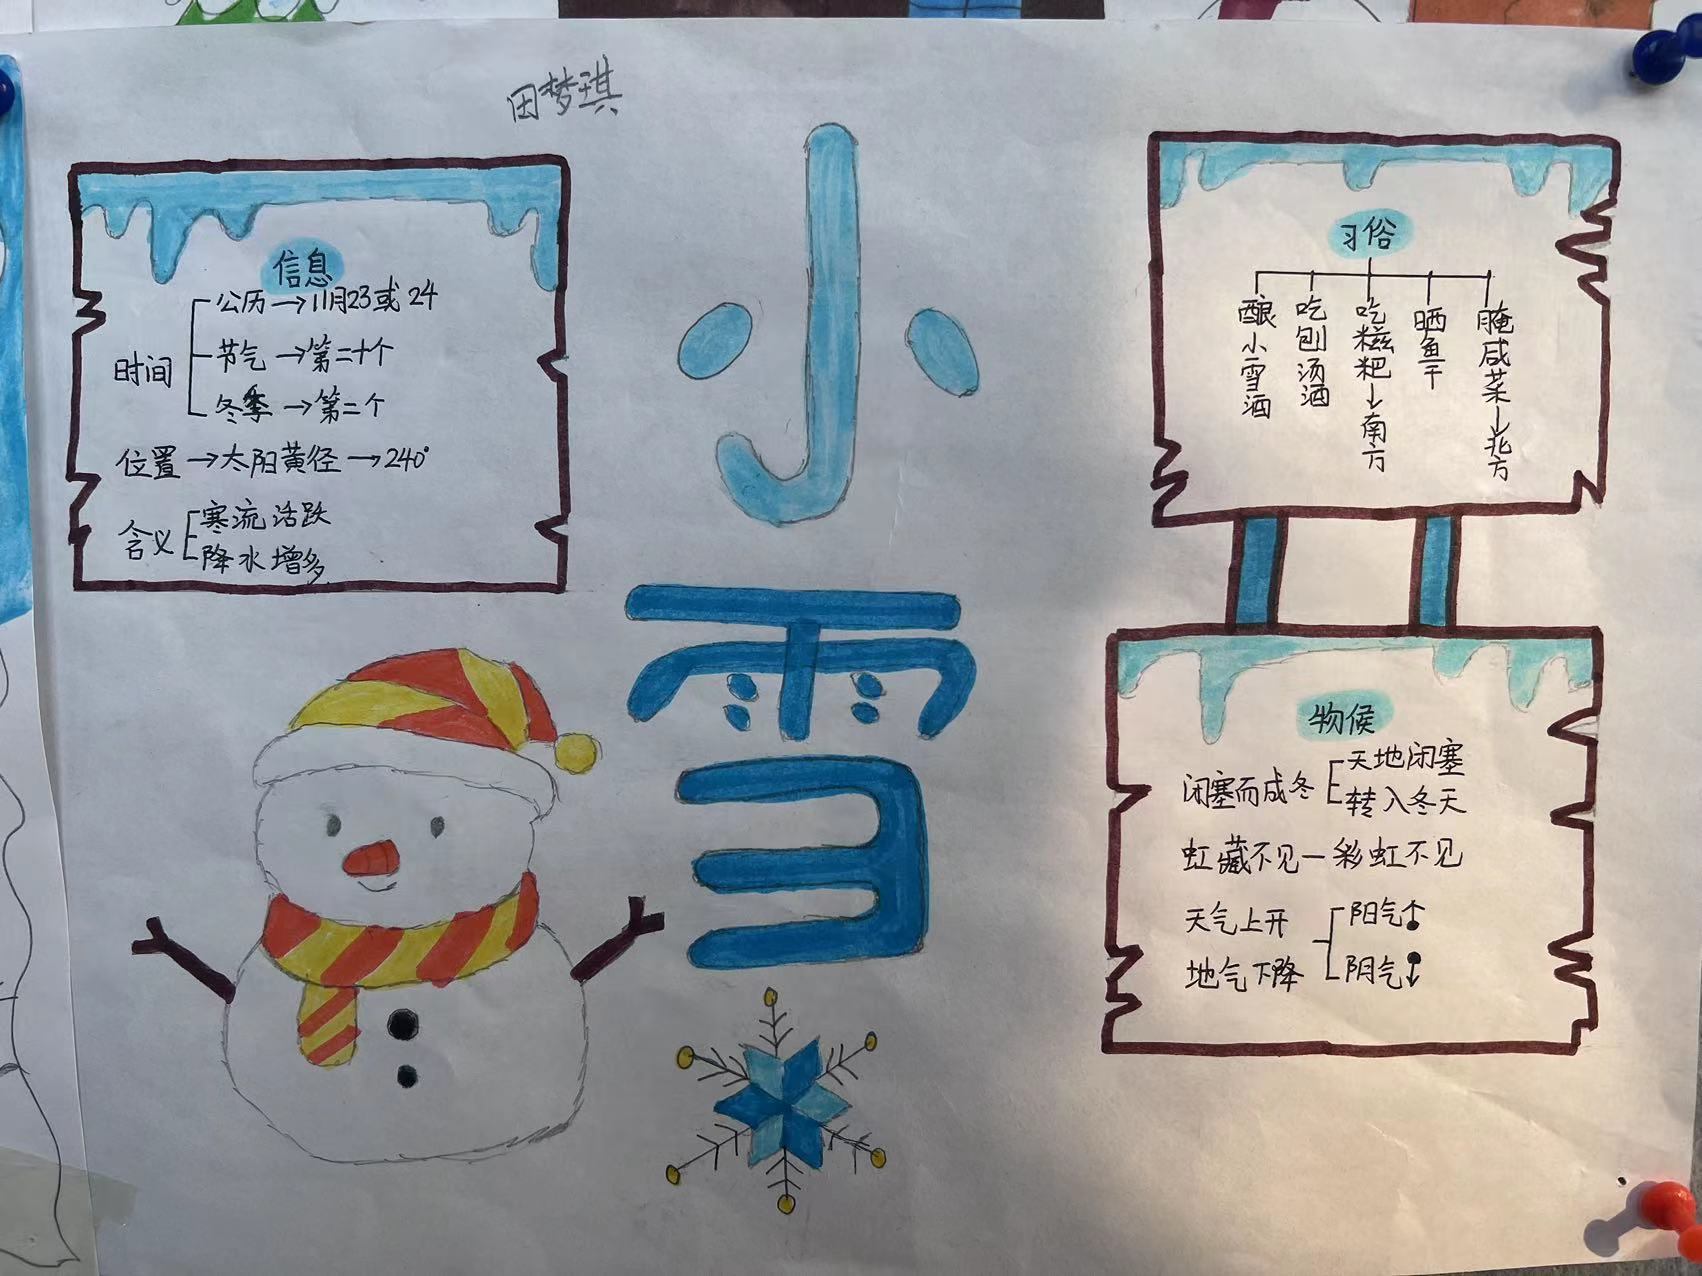 田梦琪
小雪
信息
时间
公历→11月23或24
节气→第二十个
冬季→第二个
位置→太阳黄径→240°
含义
寒流活跃
降水增多
习俗
酿小雪酒
吃刨汤酒
吃糍粑→南方
晒鱼干
腌咸菜→北方
物候
闭塞而成冬
天地闭塞
转入冬天
虹藏不见—彩虹不见
天气上开
地气下降
阳气↑
阴气↓